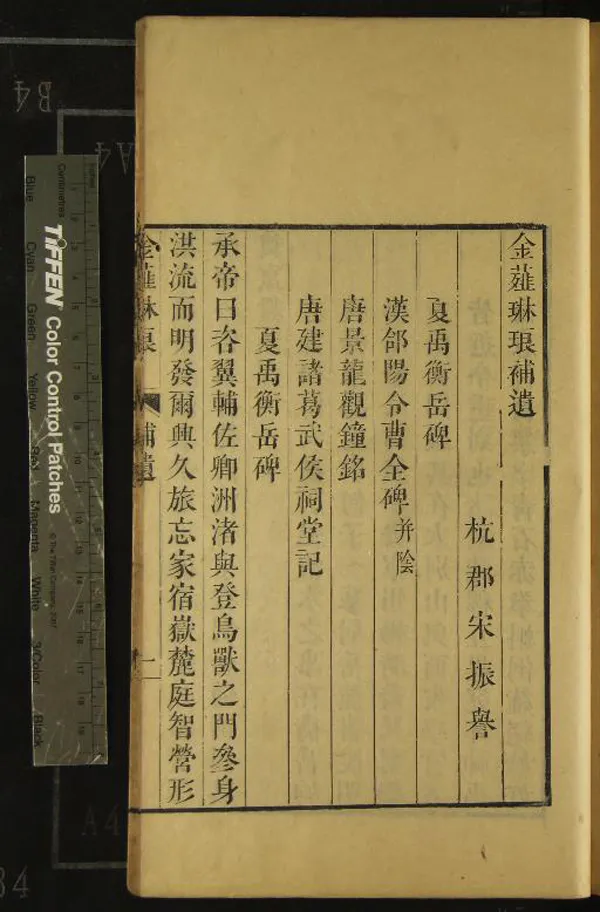 金薤琳琅補遺
杭郡宋振譽
夏禹衡岳碑
漢郃陽令曹全碑并陰
唐景龍觀鐘銘
唐建諸葛武侯祠堂記
夏禹衡岳碑
承帝曰咨翼輔佐卿洲渚與登鳥獸之門叅身
洪流而明發爾興久旅忘家宿嶽麓庭智營形
金薤琳琅 補遺 一
TIFFEN Color Control Patches
© The Tiffen Company, 2007
Centimetres
Inches
Blue
Cyan
Green
Yellow
Red
Magenta
White
3/Color
Black
B4
A4
A4
B4